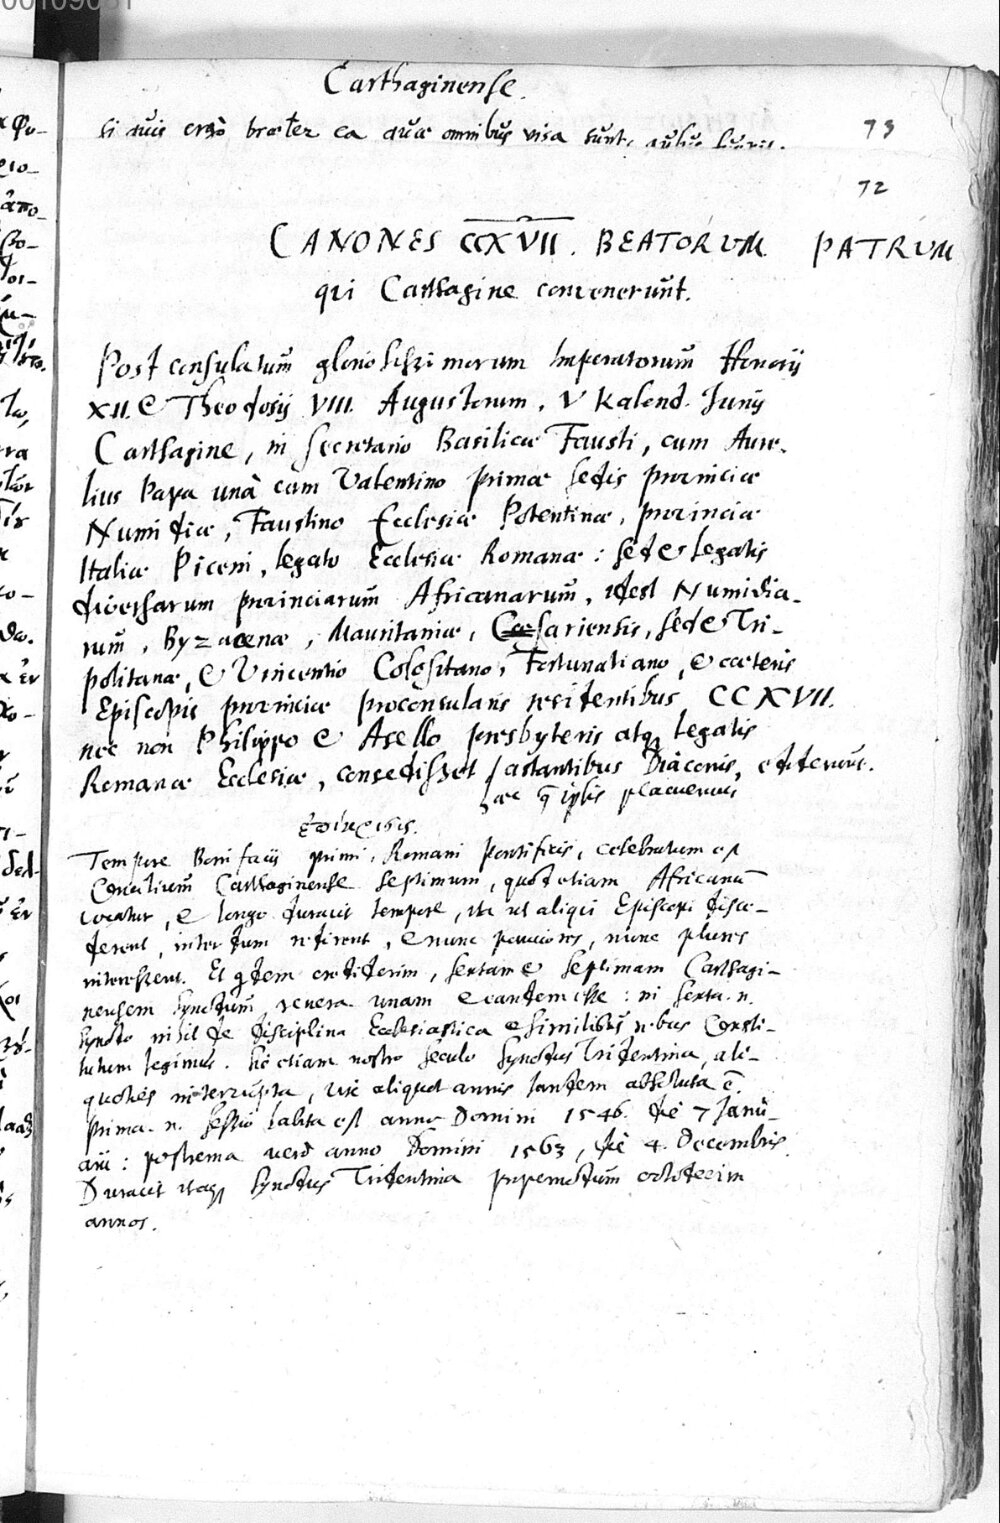 00109031
Carthaginense.
si quis ergò praeter ea quae omnibus visa sunt,
73
72
CANONES CCXVII. BEATORUM PATRUM
qui Carthagine convenerunt.
Post consulatum gloriosissimorum Imperatorum Honorij
XII. & Theodosij VIII. Augustorum, V Kalend. Junij
Carthagine, in secretario Basilicae Fausti, cum Aure-
lius Papa unà cum Valentino primae sedis provinciae
Numidiae, Faustino Ecclesiae Potentinae, provinciae
Italiae Piceni, legato Ecclesiae Romanae: sed & legatis
diversarum provinciarum Africanarum, idest Numidia-
rum, Byzacenae, Mauritaniae, Caesariensis, sed & Tri-
politanae, & Vincentio Colositano, Fortunatiano, & caeteris
Episcopis provinciae proconsularis residentibus CCXVII.
nec non Philippo & Asello presbyteris atq legatis
Romanae Ecclesiae, consedisset astantibus Diaconis, ediderunt.
haec q̄ ipsis placuerunt
ἐπίκρισις.
Tempore Bonifacij primi, Romani pontificis, celebratum est
Concilium Carthaginense septimum, quod etiam Africanū
vocatur, & longo duravit tempore, ita ut aliqui Episcopi disce-
derent, interdum redirent, & nunc pauciores, nunc plures
interessent. Et qdem crediderim, sextam & septimam Carthagi-
nensem synodum, revera unam & eandem esse: in sexta .n.
synodo nihil de disciplina Ecclesiastica & similibus rebus Consti-
tutum legimus. Sic etiam nostro seculo synodus Tridentina, ali-
quoties interrupta, vix aliquot annis tandem absoluta ē.
prima .n. sessio habita est anno Domini 1546. die 7 Janu-
arii: postrema verò anno Domini 1563, die 4. Decembris.
Duravit itaq synodus Tridentina propemodum octodecim
annos.